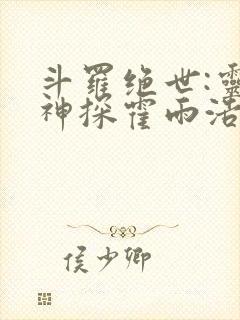 斗羅绝世:靈
神探霍雨浩
侯少卿